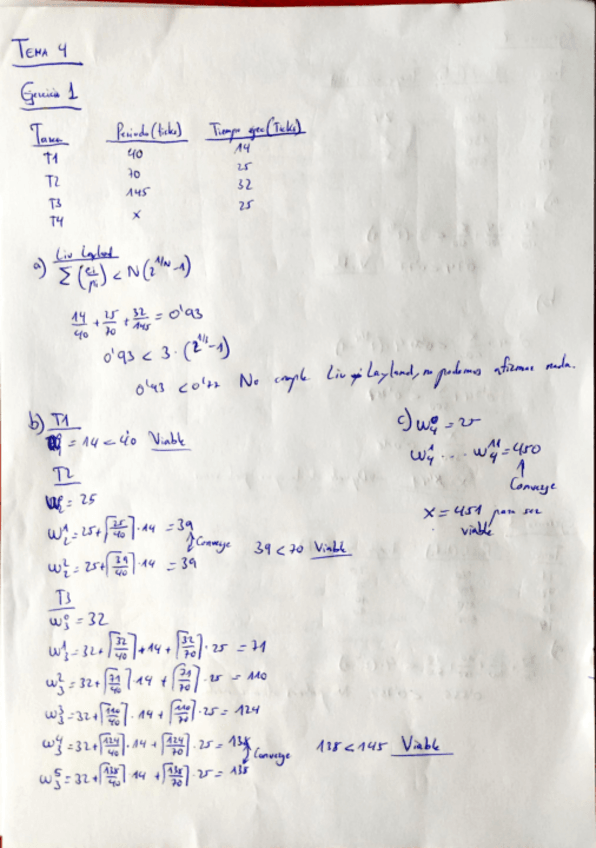 TEMA 4
Ejercicio 1
Tarea Periodo (ticks) Tiempo ejec (Ticks)
T1 40 14
T2 70 25
T3 145 32
T4 x 25
a) Liu Layland
Σ(ei/pi) < N(2^1/N - 1)
14/40 + 25/70 + 32/145 = 0'93
0'93 < 3 · (2^1/3 - 1)
0'93 < 0'77 No cumple Liu y Layland, no podemos afirmar nada.
b) T1
= 14 < 40 Viable
T2
= 25
w₂¹ = 25 + ⌈25/40⌉ · 14 = 39
Converge
w₂² = 25 + ⌈39/40⌉ · 14 = 39
39 < 70 Viable
T3
w₃⁰ = 32
w₃¹ = 32 + ⌈32/40⌉ + 14 + ⌈32/70⌉ · 25 = 71
w₃² = 32 + ⌈71/40⌉ · 14 + ⌈71/70⌉ · 25 = 110
w₃³ = 32 + ⌈110/40⌉ · 14 + ⌈110/70⌉ · 25 = 124
w₃⁴ = 32 + ⌈124/40⌉ · 14 + ⌈124/70⌉ · 25 = 138
Converge
w₃⁵ = 32 + ⌈138/40⌉ · 14 + ⌈138/70⌉ · 25 = 138
138 < 145 Viable
c) w₄⁰ = 25
w₄¹ .... w₄¹¹ = 450
Converge
x = 451 para ser
viable